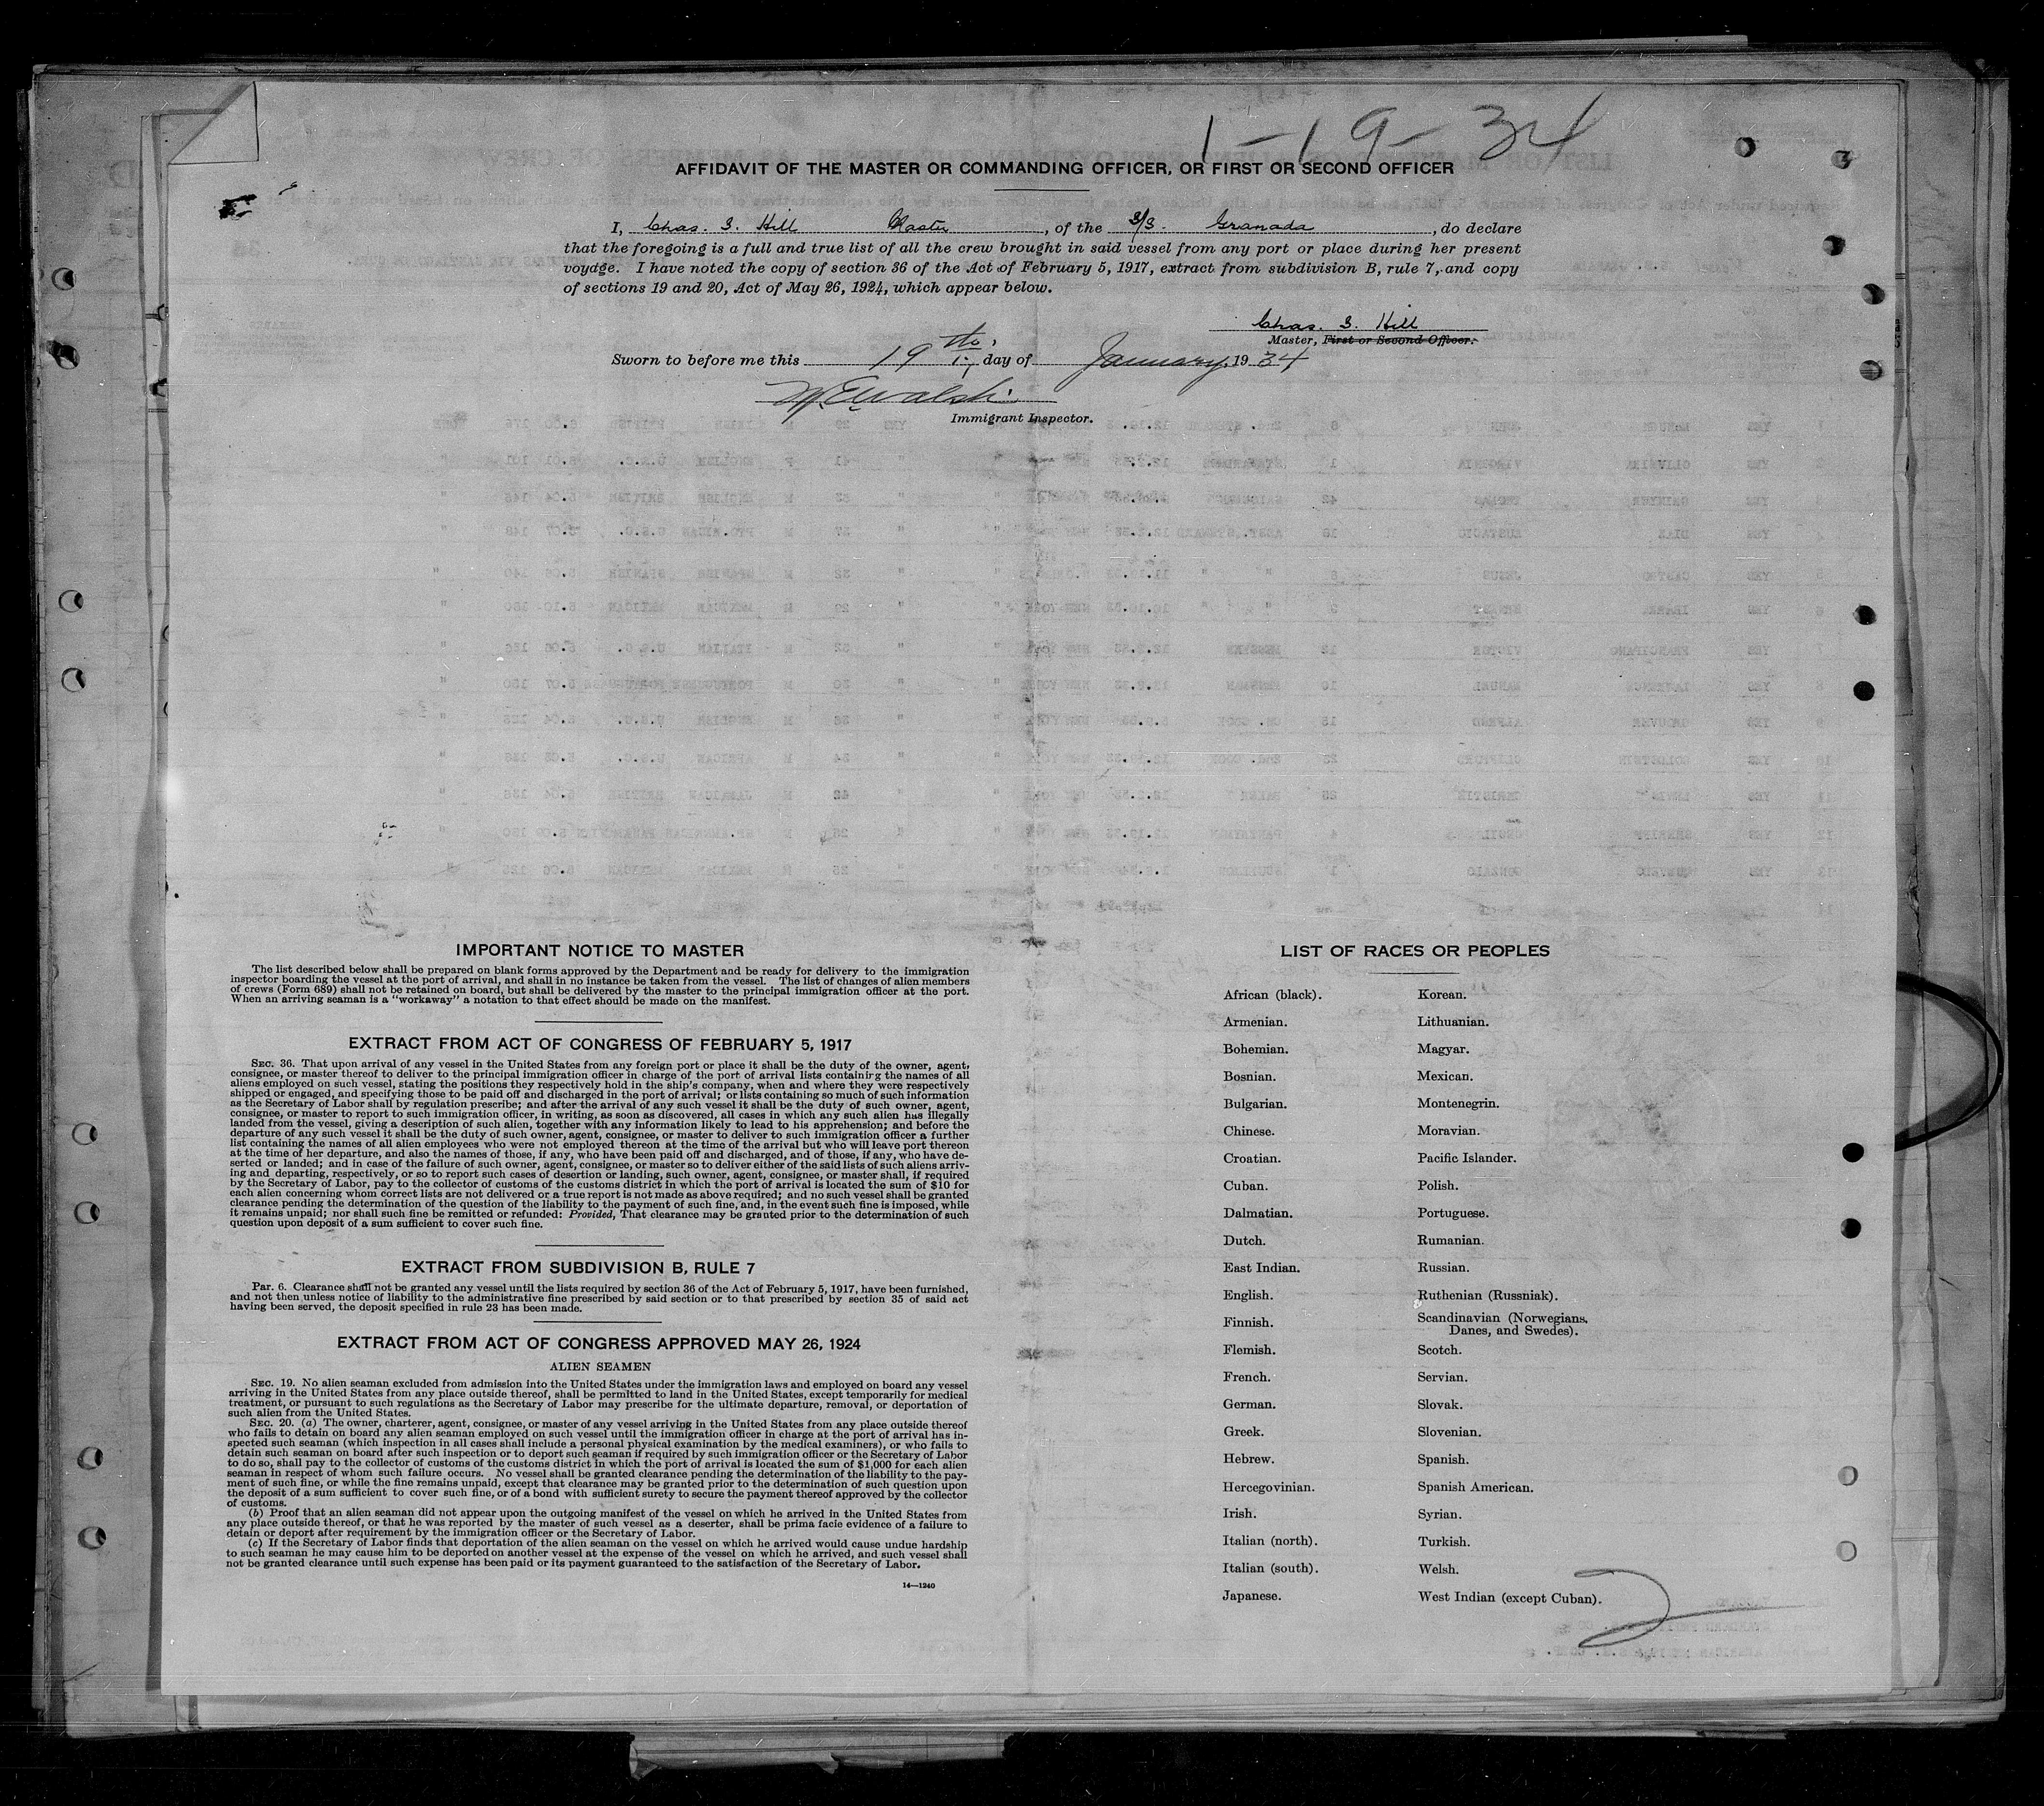 1-19-34
AFFIDAVIT OF THE MASTER OR COMMANDING OFFICER, OR FIRST OR SECOND OFFICER
I, Chas. S. Hill Master, of the S/S. Granada, do declare
that the foregoing is a full and true list of all the crew brought in said vessel from any port or place during her present
voyage. I have noted the copy of section 36 of the Act of February 5, 1917, extract from subdivision B, rule 7, and copy
of sections 19 and 20, Act of May 26, 1924, which appear below.
Chas. S. Hill
Master, First or Second Officer.
Sworn to before me this 19th day of January, 1934
Immigrant Inspector.
IMPORTANT NOTICE TO MASTER
The list described below shall be prepared on blank forms approved by the Department and be ready for delivery to the immigration
inspector boarding the vessel at the port of arrival, and shall in no instance be taken from the vessel. The list of changes of alien members
of crews (Form 689) shall not be retained on board, but shall be delivered by the master to the principal immigration officer at the port.
When an arriving seaman is a "workaway" a notation to that effect should be made on the manifest.
EXTRACT FROM ACT OF CONGRESS OF FEBRUARY 5, 1917
SEC. 36. That upon arrival of any vessel in the United States from any foreign port or place it shall be the duty of the owner, agent,
consignee, or master thereof to deliver to the principal immigration officer in charge of the port of arrival lists containing the names of all
aliens employed on such vessel, stating the positions they respectively hold in the ship's company, when and where they were respectively
shipped or engaged, and specifying those to be paid off and discharged in the port of arrival; or lists containing so much of such information
as the Secretary of Labor shall by regulation prescribe; and after the arrival of any such vessel it shall be the duty of such owner, agent,
consignee, or master to report to such immigration officer, in writing, as soon as discovered, all cases in which any such alien has illegally
landed from the vessel, giving a description of such alien, together with any information likely to lead to his apprehension; and before the
departure of any such vessel it shall be the duty of such owner, agent, consignee, or master to deliver to such immigration officer a further
list containing the names of all alien employees who were not employed thereon at the time of the arrival but who will leave port thereon
at the time of her departure, and also the names of those, if any, who have been paid off and discharged, and of those, if any, who have de-
serted or landed; and in case of the failure of such owner, agent, consignee, or master so to deliver either of the said lists of such aliens arriv-
ing and departing, respectively, or so to report such cases of desertion or landing, such owner, agent, consignee, or master shall, if required
by the Secretary of Labor, pay to the collector of customs of the customs district in which the port of arrival is located the sum of $10 for
each alien concerning whom correct lists are not delivered or a true report is not made as above required; and no such vessel shall be granted
clearance pending the determination of the question of the liability to the payment of such fine, and, in the event such fine is imposed, while
it remains unpaid; nor shall such fine be remitted or refunded: Provided, That clearance may be granted prior to the determination of such
question upon deposit of a sum sufficient to cover such fine.
EXTRACT FROM SUBDIVISION B, RULE 7
Par. 6. Clearance shall not be granted any vessel until the lists required by section 36 of the Act of February 5, 1917, have been furnished,
and not then unless notice of liability to the administrative fine prescribed by said section or to that prescribed by section 35 of said act
having been served, the deposit specified in rule 23 has been made.
EXTRACT FROM ACT OF CONGRESS APPROVED MAY 26, 1924
ALIEN SEAMEN
SEC. 19. No alien seaman excluded from admission into the United States under the immigration laws and employed on board any vessel
arriving in the United States from any place outside thereof, shall be permitted to land in the United States, except temporarily for medical
treatment, or pursuant to such regulations as the Secretary of Labor may prescribe for the ultimate departure, removal, or deportation of
such alien from the United States.
SEC. 20. (a) The owner, charterer, agent, consignee, or master of any vessel arriving in the United States from any place outside thereof
who fails to detain on board any alien seaman employed on such vessel until the immigration officer in charge at the port of arrival has in-
spected such seaman (which inspection in all cases shall include a personal physical examination by the medical examiners), or who fails to
detain such seaman on board after such inspection or to deport such seaman if required by such immigration officer or the Secretary of Labor
to do so, shall pay to the collector of customs of the customs district in which the port of arrival is located the sum of $1,000 for each alien
seaman in respect of whom such failure occurs. No vessel shall be granted clearance pending the determination of the liability to the pay-
ment of such fine, or while the fine remains unpaid, except that clearance may be granted prior to the determination of such question upon
the deposit of a sum sufficient to cover such fine, or of a bond with sufficient surety to secure the payment thereof approved by the collector
of customs.
(b) Proof that an alien seaman did not appear upon the outgoing manifest of the vessel on which he arrived in the United States from
any place outside thereof, or that he was reported by the master of such vessel as a deserter, shall be prima facie evidence of a failure to
detain or deport after requirement by the immigration officer or the Secretary of Labor.
(c) If the Secretary of Labor finds that deportation of the alien seaman on the vessel on which he arrived would cause undue hardship
to such seaman he may cause him to be deported on another vessel at the expense of the vessel on which he arrived, and such vessel shall
not be granted clearance until such expense has been paid or its payment guaranteed to the satisfaction of the Secretary of Labor.
14—1240
LIST OF RACES OR PEOPLES
African (black). Korean.
Armenian. Lithuanian.
Bohemian. Magyar.
Bosnian. Mexican.
Bulgarian. Montenegrin.
Chinese. Moravian.
Croatian. Pacific Islander.
Cuban. Polish.
Dalmatian. Portuguese.
Dutch. Rumanian.
East Indian. Russian.
English. Ruthenian (Russniak).
Finnish. Scandinavian (Norwegians,
Danes, and Swedes).
Flemish. Scotch.
French. Servian.
German. Slovak.
Greek. Slovenian.
Hebrew. Spanish.
Hercegovinian. Spanish American.
Irish. Syrian.
Italian (north). Turkish.
Italian (south). Welsh.
Japanese. West Indian (except Cuban).